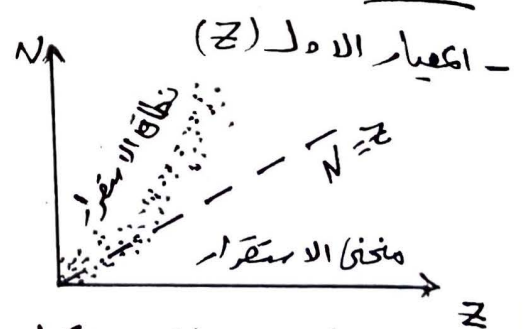 - المعيار الاول (Z)
N
نطاق الاستقرار
N=Z
منحنى الاستقرار
Z